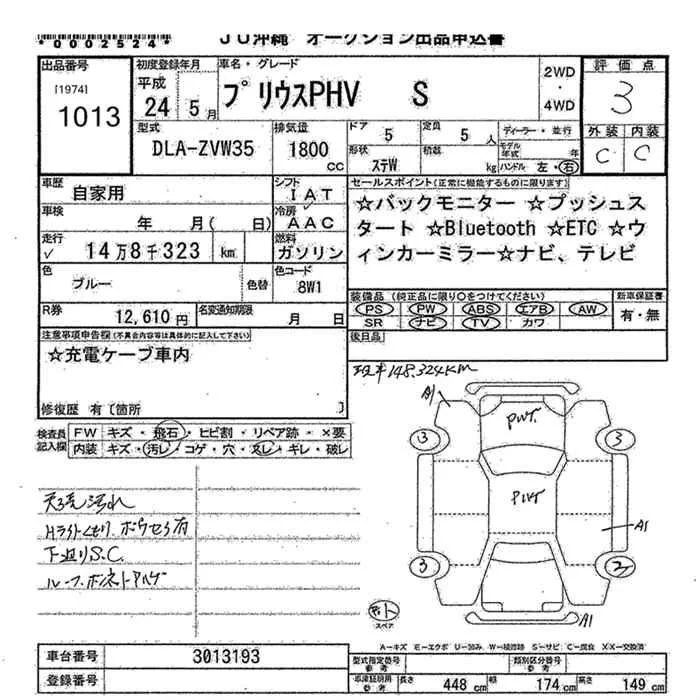 *0002524*
JU沖縄 オークション出品申込書
出品番号
[1974]
1013
初度登録年月
平成
24 5月
車名・グレード
プリウスPHV S
2WD
・
4WD
評価点
3
外装 内装
C C
型式
DLA-ZVW35
排気量
1800
cc
ドア
5
定員
5 人
ディーラー・並行
形状
ステW
積載
kg
モデル年式
年
ハンドル 左・右
車歴
自家用
シフト
IAT
車検
年 月( 日)
冷房
AAC
走行
14万8千323 km
燃料
ガソリン
色
ブルー
色替
色コード
8W1
R券
12,610円
名変通知期限
月 日
セールスポイント(正常に機能するものに限ります)
☆バックモニター ☆プッシュス
タート ☆Bluetooth ☆ETC ☆ウ
ィンカーミラー☆ナビ、テレビ
装備品 (純正品に限り○をつけてください)
PS PW ABS エアB AW
SR ナビ TV カワ
新車保証書
有・無
後日品
注意事項申告欄(不具合内容等は具体的に記入して下さい)
☆充電ケーブ車内
修復歴 有〔箇所 〕
検査員
記入欄
FW キズ・飛石・ヒビ割・リペア跡・×要
内装 キズ・汚レ・コゲ・穴・スレ・ギレ・破レ
148,324KM
A1
PWT.
3
3
PWT
A1
3
2
スペア
Hライトくもり、ボウセイ有
下廻りS.C.
A-キズ E-エクボ U-凹み W-補修跡 S-サビ C-腐食 XX-交換済
車台番号
3013193
登録番号
型式指定番号
参考
類別区分番号
参考
車庫証明用
参考
長さ 448 cm 幅 174 cm 高さ 149 cm